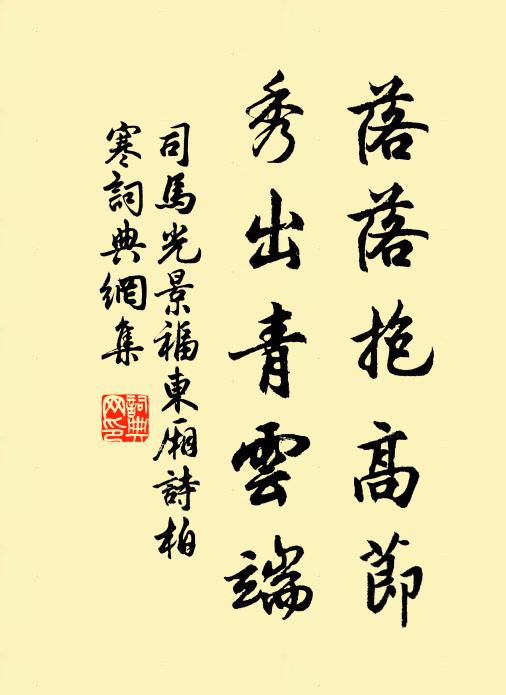 落落抱高節
秀出青雲端
司馬光景福東廂詩柏
寒詞典網集
詞典
网印